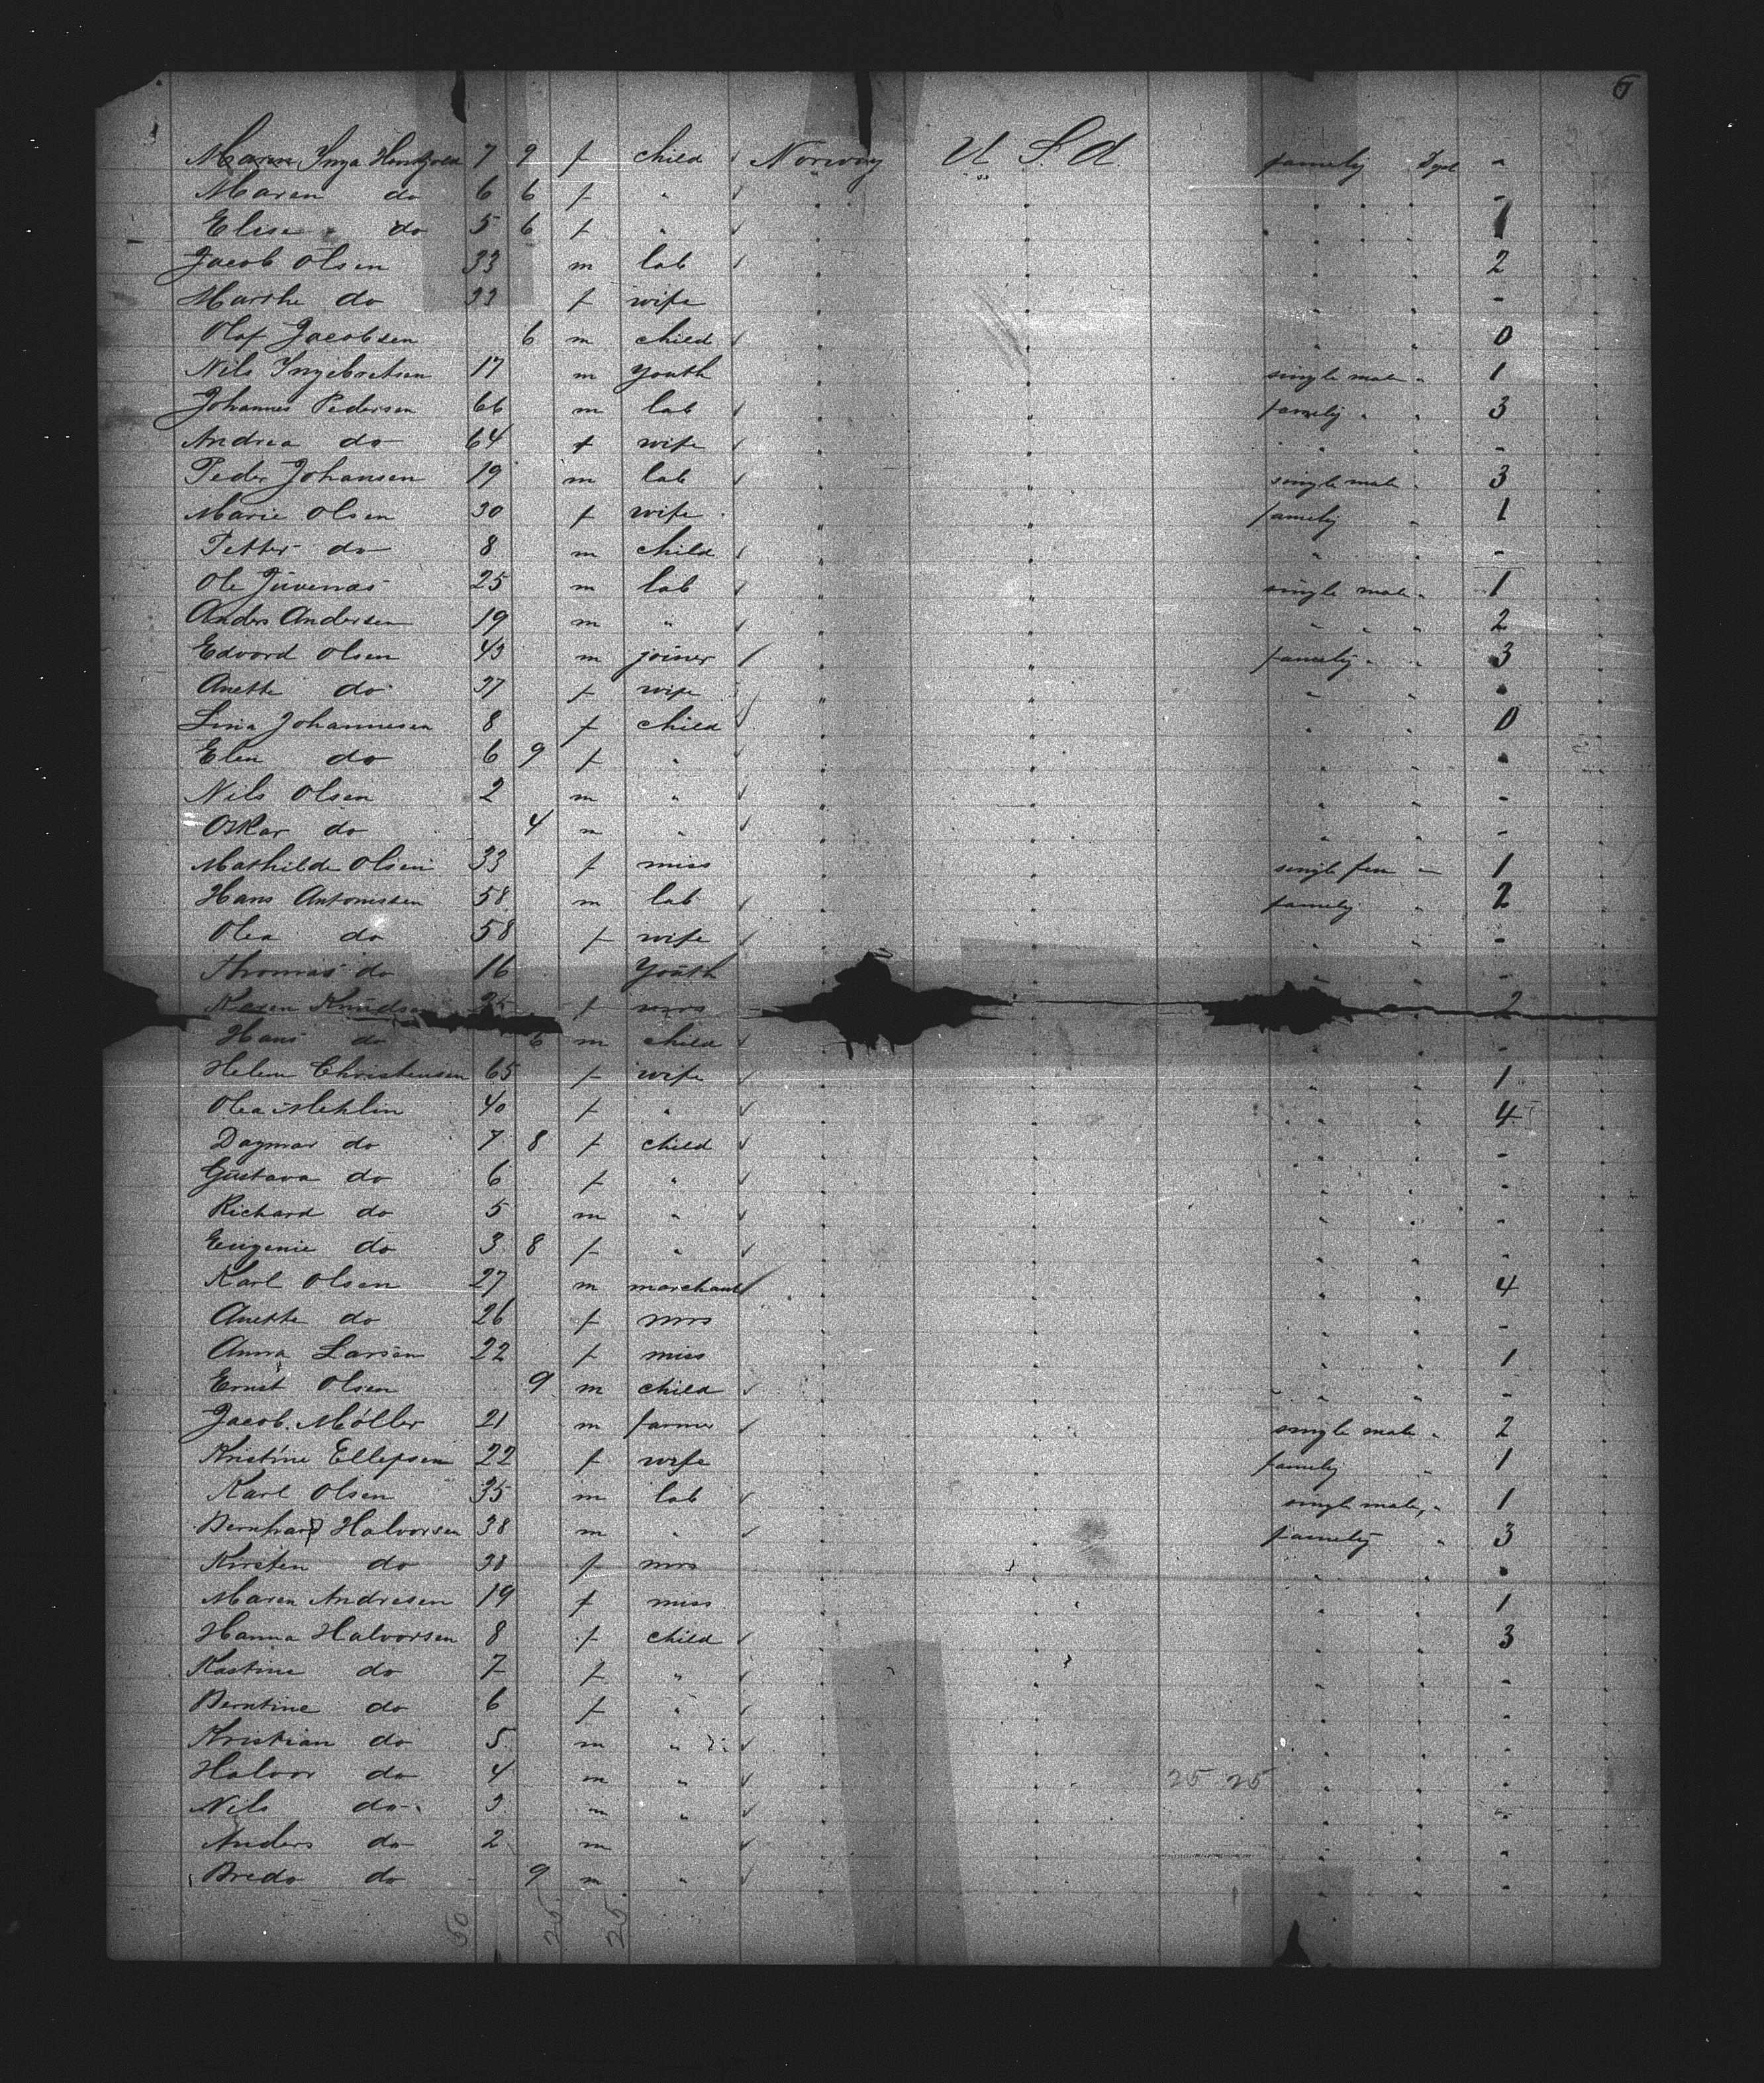 6
Maren Inga 7 9 f child Norway U S A famely
Maren do 6 6 f "
Elise do 5 6 f " 1
Jacob Olsen 33 m lab 2
Marthe do 33 f wife -
Olaf Jacobsen 6 m child 0
Nils Ingebretsen 17 m youth single male " 1
Johannes Pedersen 66 m lab famely " 3
Andrea do 64 f wife " -
Peder Johansen 19 m lab single male " 3
Marie Olsen 30 f wife famely " 1
Petter do 8 m child " -
Ole Juvenas 25 m lab single male " 1
Anders Andersen 19 m " " 2
Edvord Olsen 43 m joiner famely " 3
Anette do 37 f wife "
Lina Johannesen 8 f child " 0
Elen do 6 9 f "
Nils Olsen 2 m " -
Oskar do 4 m " -
Mathilde Olsen 33 f miss single fem " 1
Hans Antonissen 58 m lab famely " 2
Olea do 58 f wife " -
Thomas do 16 Youth " -
Karen Knudsen f mrs 2
Hans do 6 m child -
Helene Christensen 65 f wife " 1
Olea Mehlin 40 f " " 4
Dagmar do 7 8 f child -
Gustava do 6 f " -
Richard do 5 m " -
Eugenie do 3 8 f " -
Karl Olsen 27 m marchant 4
Anette do 26 f mrs -
Anna Larsen 22 f miss 1
Ernst Olsen 9 m child -
Jacob Möller 21 m farmer single male " 2
Kristine Ellefsen 22 f wife famely " 1
Karl Olsen 35 m lab single male " 1
Bernhard Halvorsen 38 m " famely " 3
Kirsten do 38 f mrs
Maren Andresen 19 f miss 1
Hanna Halvorsen 8 f child 3
Kastine do 7 f " -
Berntine do 6 f " -
Kristian do 5 m " -
Halvor do 4 m " 25 25 -
Nils do 3 m " -
Anders do 2 m -
Bredo do 9 m " -
50 25 25